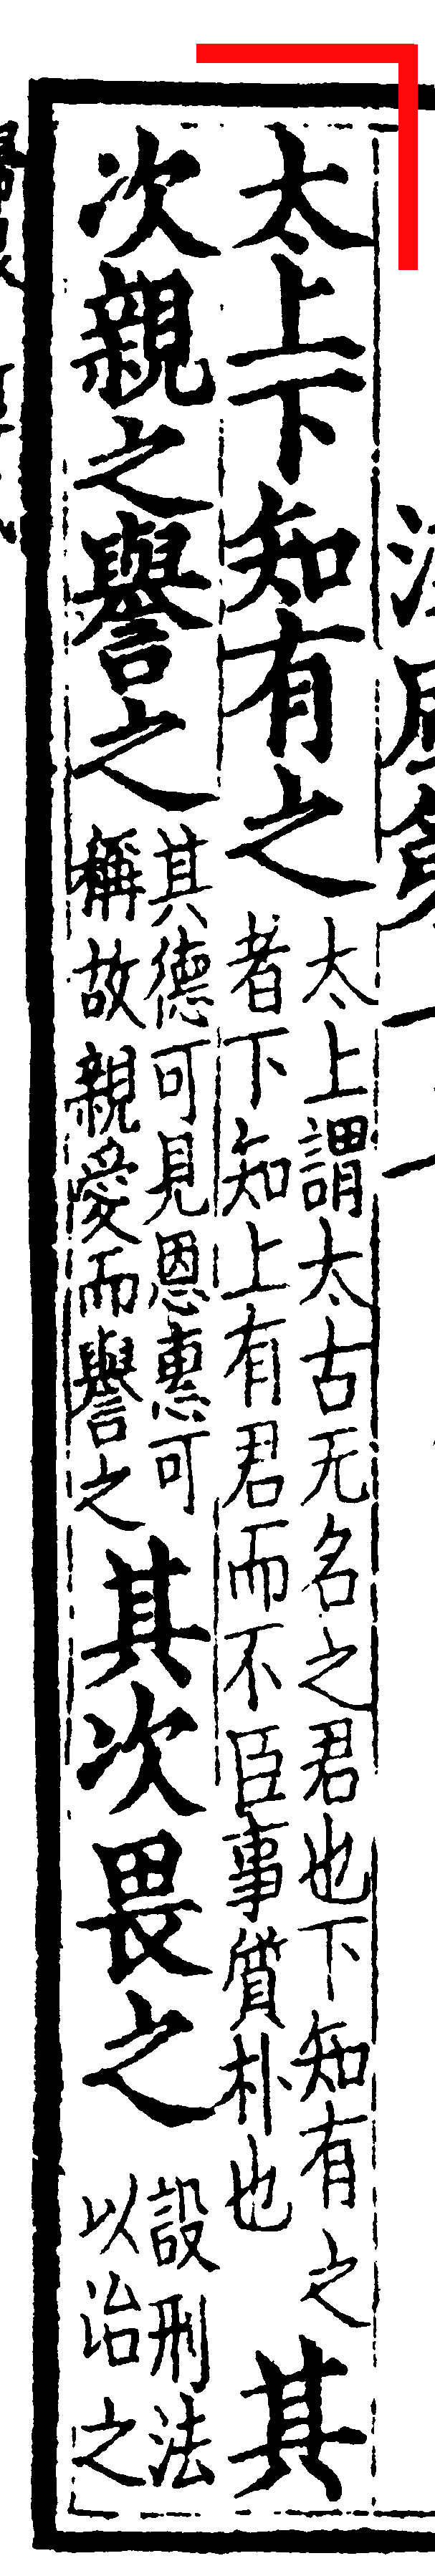 太上下知有之太上謂太古无名之君也下知有之者下知上有君而不臣事質朴也其
次親之譽之其德可見恩惠可稱故親愛而譽之其次畏之設刑法以治之